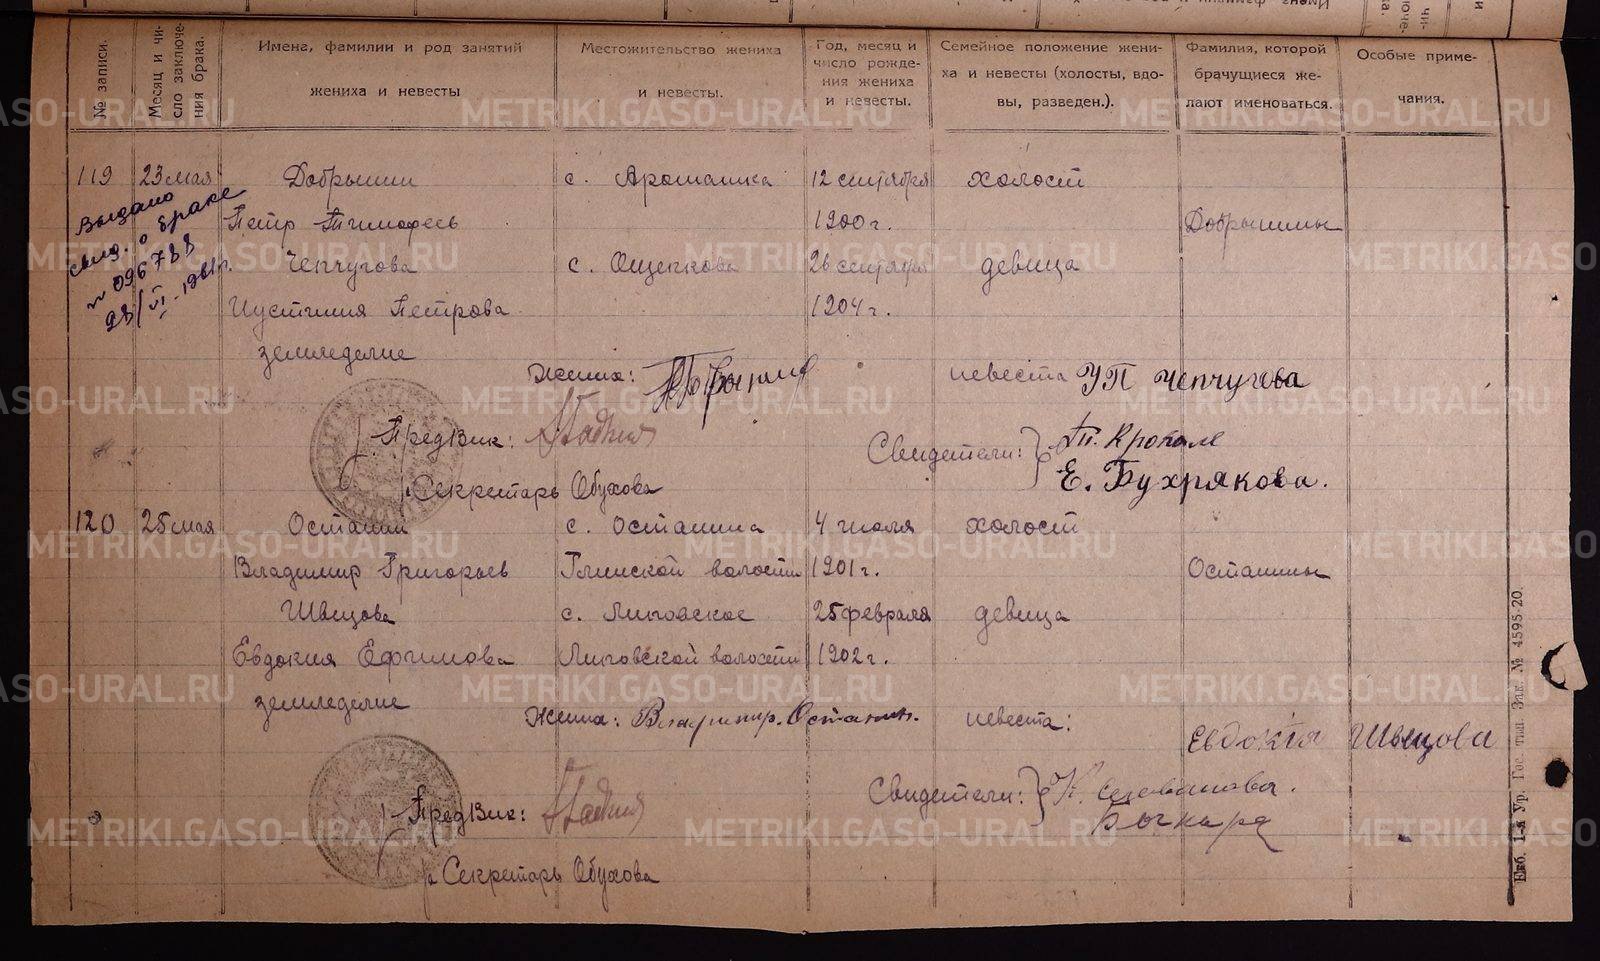 № записи.
Месяц и чи-
сло заключе-
ния брака.
Имена, фамилии и род занятий
жениха и невесты
Местожительство жениха
и невесты.
Год, месяц и
число рожде-
ния жениха
и невесты.
Семейное положение жени-
ха и невесты (холосты, вдо-
вы, разведен.).
Фамилия, которой
брачущиеся же-
лают именоваться.
Особые приме-
чания.
119 23 мая Добрынин с. Арамашка 12 сентября холост
Петр Тимофеев 1900 г. Добрынины
Чепчугова с. Ощепкова 26 сентября девица
Иустиния Петрова 1904 г.
земледелие
Выдано
свид. о браке
№ 096788
28/VI-1961г.
Жених: невеста УП Чепчугова
ПредВик: Свидетели:
Е. Бухрякова.
Секретарь Обухова
120 25 мая Останин с. Останина 4 июля холост
Владимир Григорьев Глинской волости 1901 г. Останины
Швецова с. Липовское 25 февраля девица
Евдокия Ефимова Липовской волости 1902 г.
земледелие
Жених: Владимир. Останин. невеста:
Евдокія Швецова
ПредВик: Свидетели:
Секретарь Обухова
Екб. 1-я Ур. Гос. тип. Зак. № 4595-20.
METRIKI.GASO-URAL.RU